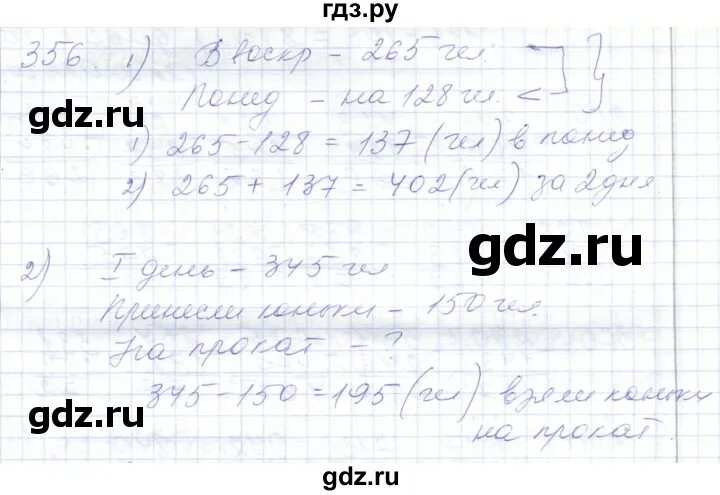 гдз.ру
356. 1) В воскр – 265 чел.
Понед – на 128 чел. <
gdz.ru
1) 265 – 128 = 137 (чел) в понед
2) 265 + 137 = 402 (чел) за 2 дня.
gdz.ru
2) I день – 345 чел.
Принесли коньки – 150 чел.
На прокат – ?
gdz.ru
345 – 150 = 195 (чел) взяли коньки
на прокат.
gdz.ru
gdz.ru